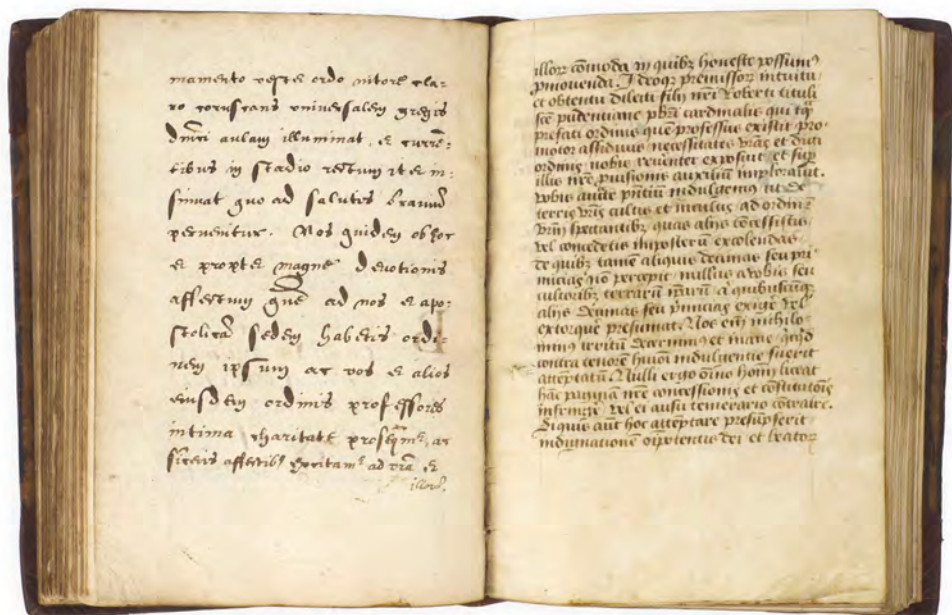 mamento vester ordo nitore cla-
ro coruscans universalem gregis
dn̄ici aulam illuminat, et currē-
tibus in stadio rectum iter in-
sinuat quo ad salutis braviū
pervenitur. Nos quidem ob hoc
et propter magne devotionis
affectum quē ad nos et apo-
stolicā sedem habetis ordi-
nem ipsum ac vos et alios
eiusdem ordinis professores
intima charitate prosequimˀ, ac
sīceris affectibˀ excitamˀ ad vr̄a et
illorˀ.
illorꝝ cōmoda in quibꝫ honeste possumˀ
ꝓmovenda. Ideoqꝫ premissorꝝ intuitu
et obtentu dilecti filij nr̄i Roberti tituli
sc̄e pudentiane pbr̄i cardinalis qui
prefati ordinis quē professus existit pro-
motor assiduus necessitates vr̄as et dicti
ordinis nobis reverenter exposuit et sup
illis nr̄e ꝓvisionis auxiliū imploravit.
vobis aūte pn̄tium indulgemus ut de
terris vr̄is cultis et incultis ad ordinē
vr̄m spectantibꝫ quas alijs cōcessistis
vel concedetis imposterū excolendas
de quibꝫ tamē aliquis decimas seu pri-
micias nō percepit nullus a vobis seu
cultoribꝫ terrarū ip̄arū a quibuscūqꝫ
alijs decimas seu primicias exigere vel
extorquere presumat. Nos em̄ nichilo-
minus irritū decernimˀ et inane quicqͥd
contra tenorē huiōi indulgentie fuerit
attēptatū. Nulli ergo oīno hoīm liceat
hāc paginā nr̄e concessionis et cōstitutōis
infringere vel ei ausu temerario cōtraire.
Siquis aūt hoc attēptare presūpserit
indignationē oīpotentis dei et beatorꝝ